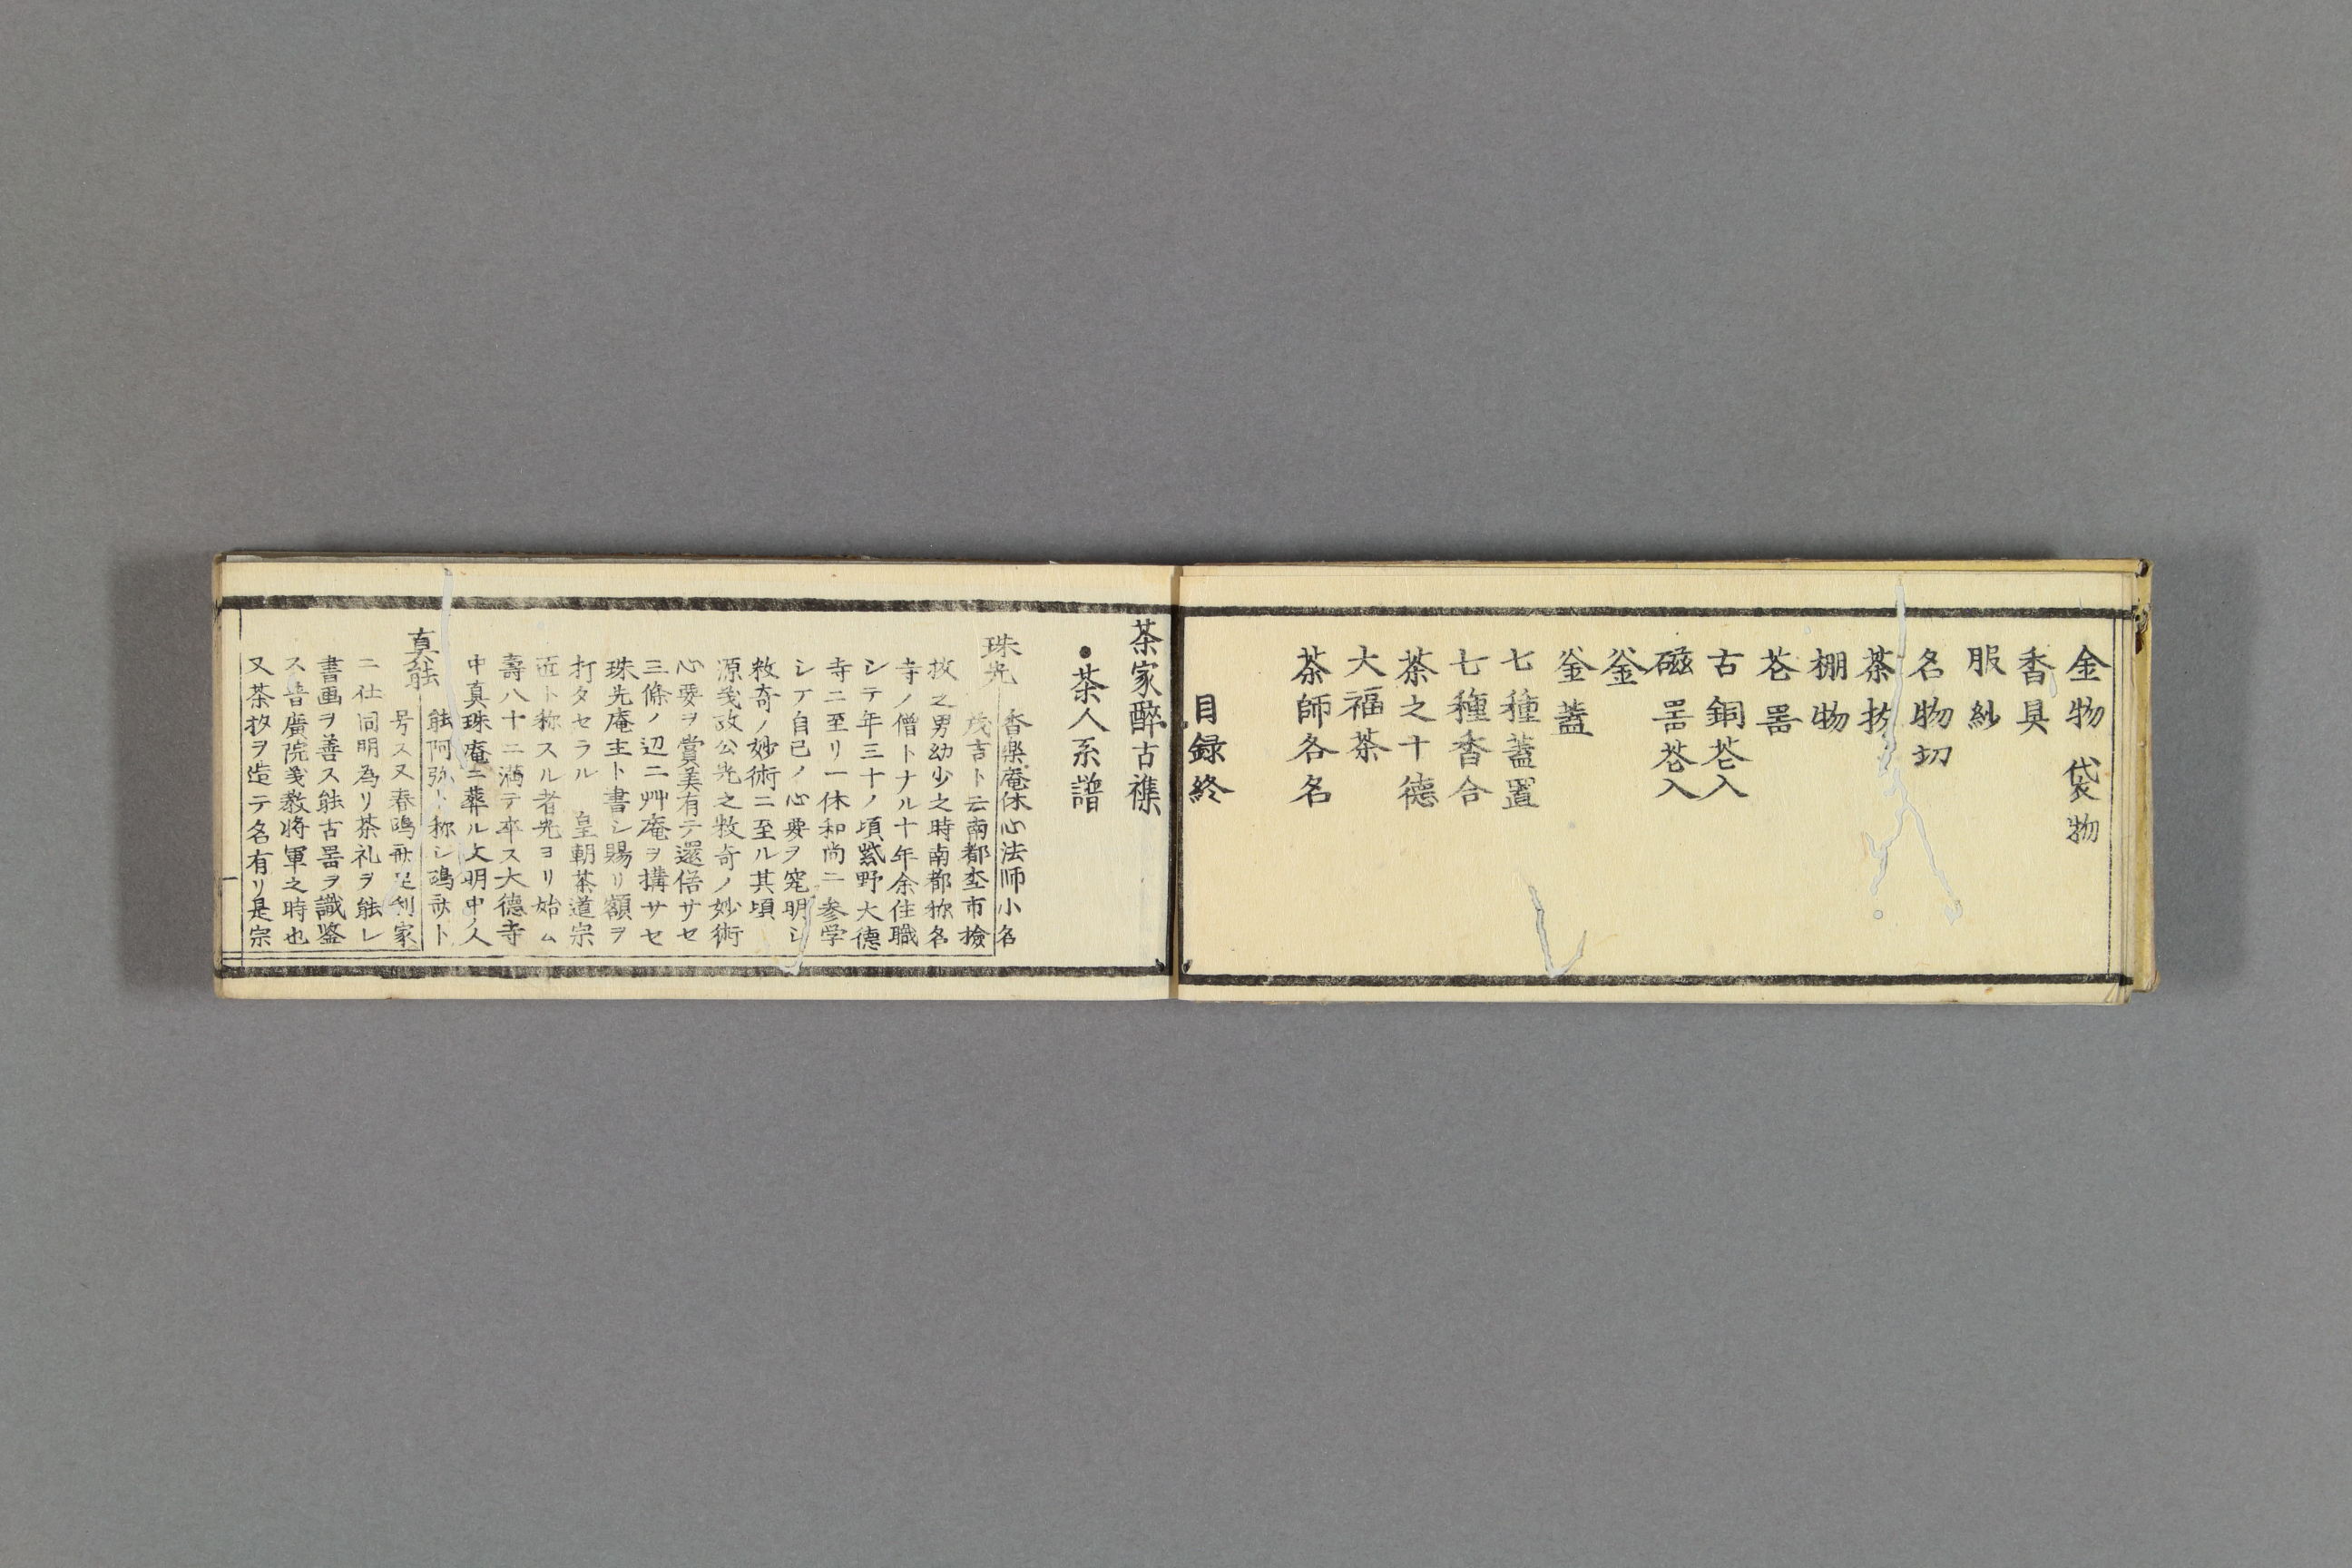 金物 袋物
香具
服紗
名物切
茶杓
棚物
花器
古銅花入
磁器花入
釜
釜蓋
七種蓋置
七種香合
茶之十徳
大福茶
茶師各名
目録終
茶家醉古襍
●茶人系譜
珠光 香樂庵休心法师小名
茂吉ト云南都杢市撿
挍之男幼少之時南都称名
寺ノ僧トナル十年余住職
シテ年三十ノ頃紫野大德
寺ニ至リ一休和尚ニ参学
シテ自己ノ心要ヲ究明シ
敉奇ノ妙術ニ至ル其頃
源義政公光之敉奇ノ妙術
心要ヲ賞美有テ還俗サセ
三條ノ辺ニ艸庵ヲ搆サセ
珠光庵主ト書シ賜リ額ヲ
打タセラル 皇朝茶道宗
匠ト称スル者光ヨリ始ム
壽八十ニ満テ卒ス大德寺
中真珠庵ニ葬ル文明中ノ人
真能 能阿弥ト称シ鴎斎ト
号ス又春鴎斎足利家
ニ仕同明為リ茶礼ヲ能レ
書画ヲ善ス能古器ヲ識鑒
ス普廣院義教将軍之時也
又茶杓ヲ造テ名有リ是宗